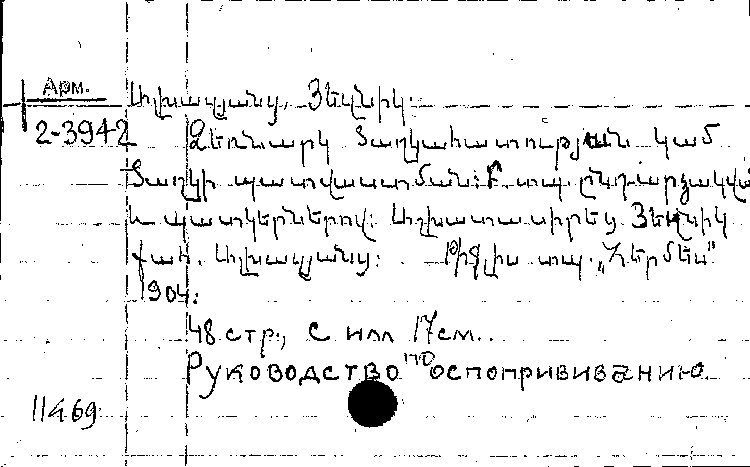 Арм.
2-3942
Ալխազյանց, Յեզնիկ.
Ձեռնարկ ծաղկահատության կամ
ծաղկի պատվաստման: Բ տպ. ընդարձակված
և պատկերներով: Աշխատասիրեց Յեզնիկ
քահ. Ալխազյանց: Թիֆլիս տպ. „Հերմես"
1904:
48 стр., с илл 17см.
Руководство по оспопрививанию.
11469